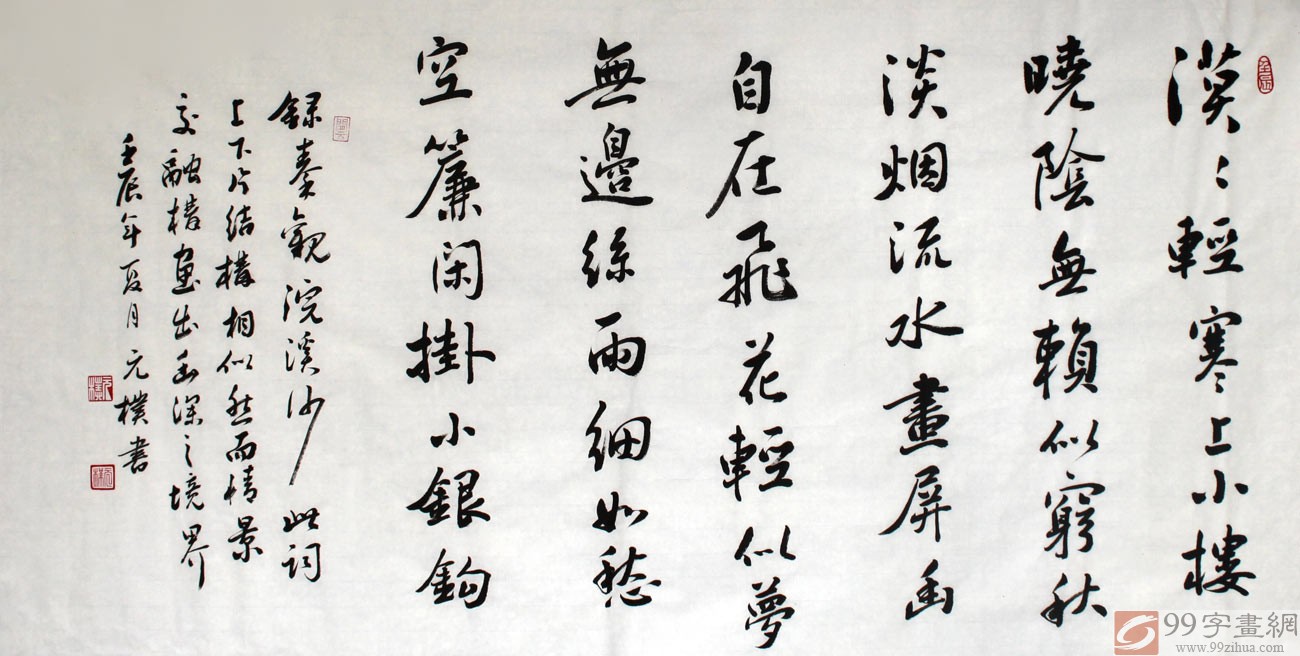 漠〻輕寒上小樓
曉陰無賴似窮秋
淡烟流水畫屏幽
自在飛花輕似夢
無邊絲雨細如愁
空簾閑掛小銀鈎
録秦觀浣溪沙 此詞
上下片結構相似然而情景
交融描畫出幽深之境界
壬辰年夏月元樸書
99字畫網
www.99zihua.com